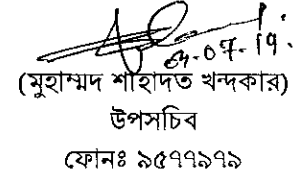 04-07-19.
(মুহাম্মদ শাহাদত খন্দকার)
উপসচিব
ফোনঃ ৯৫৭৭৯৭৯